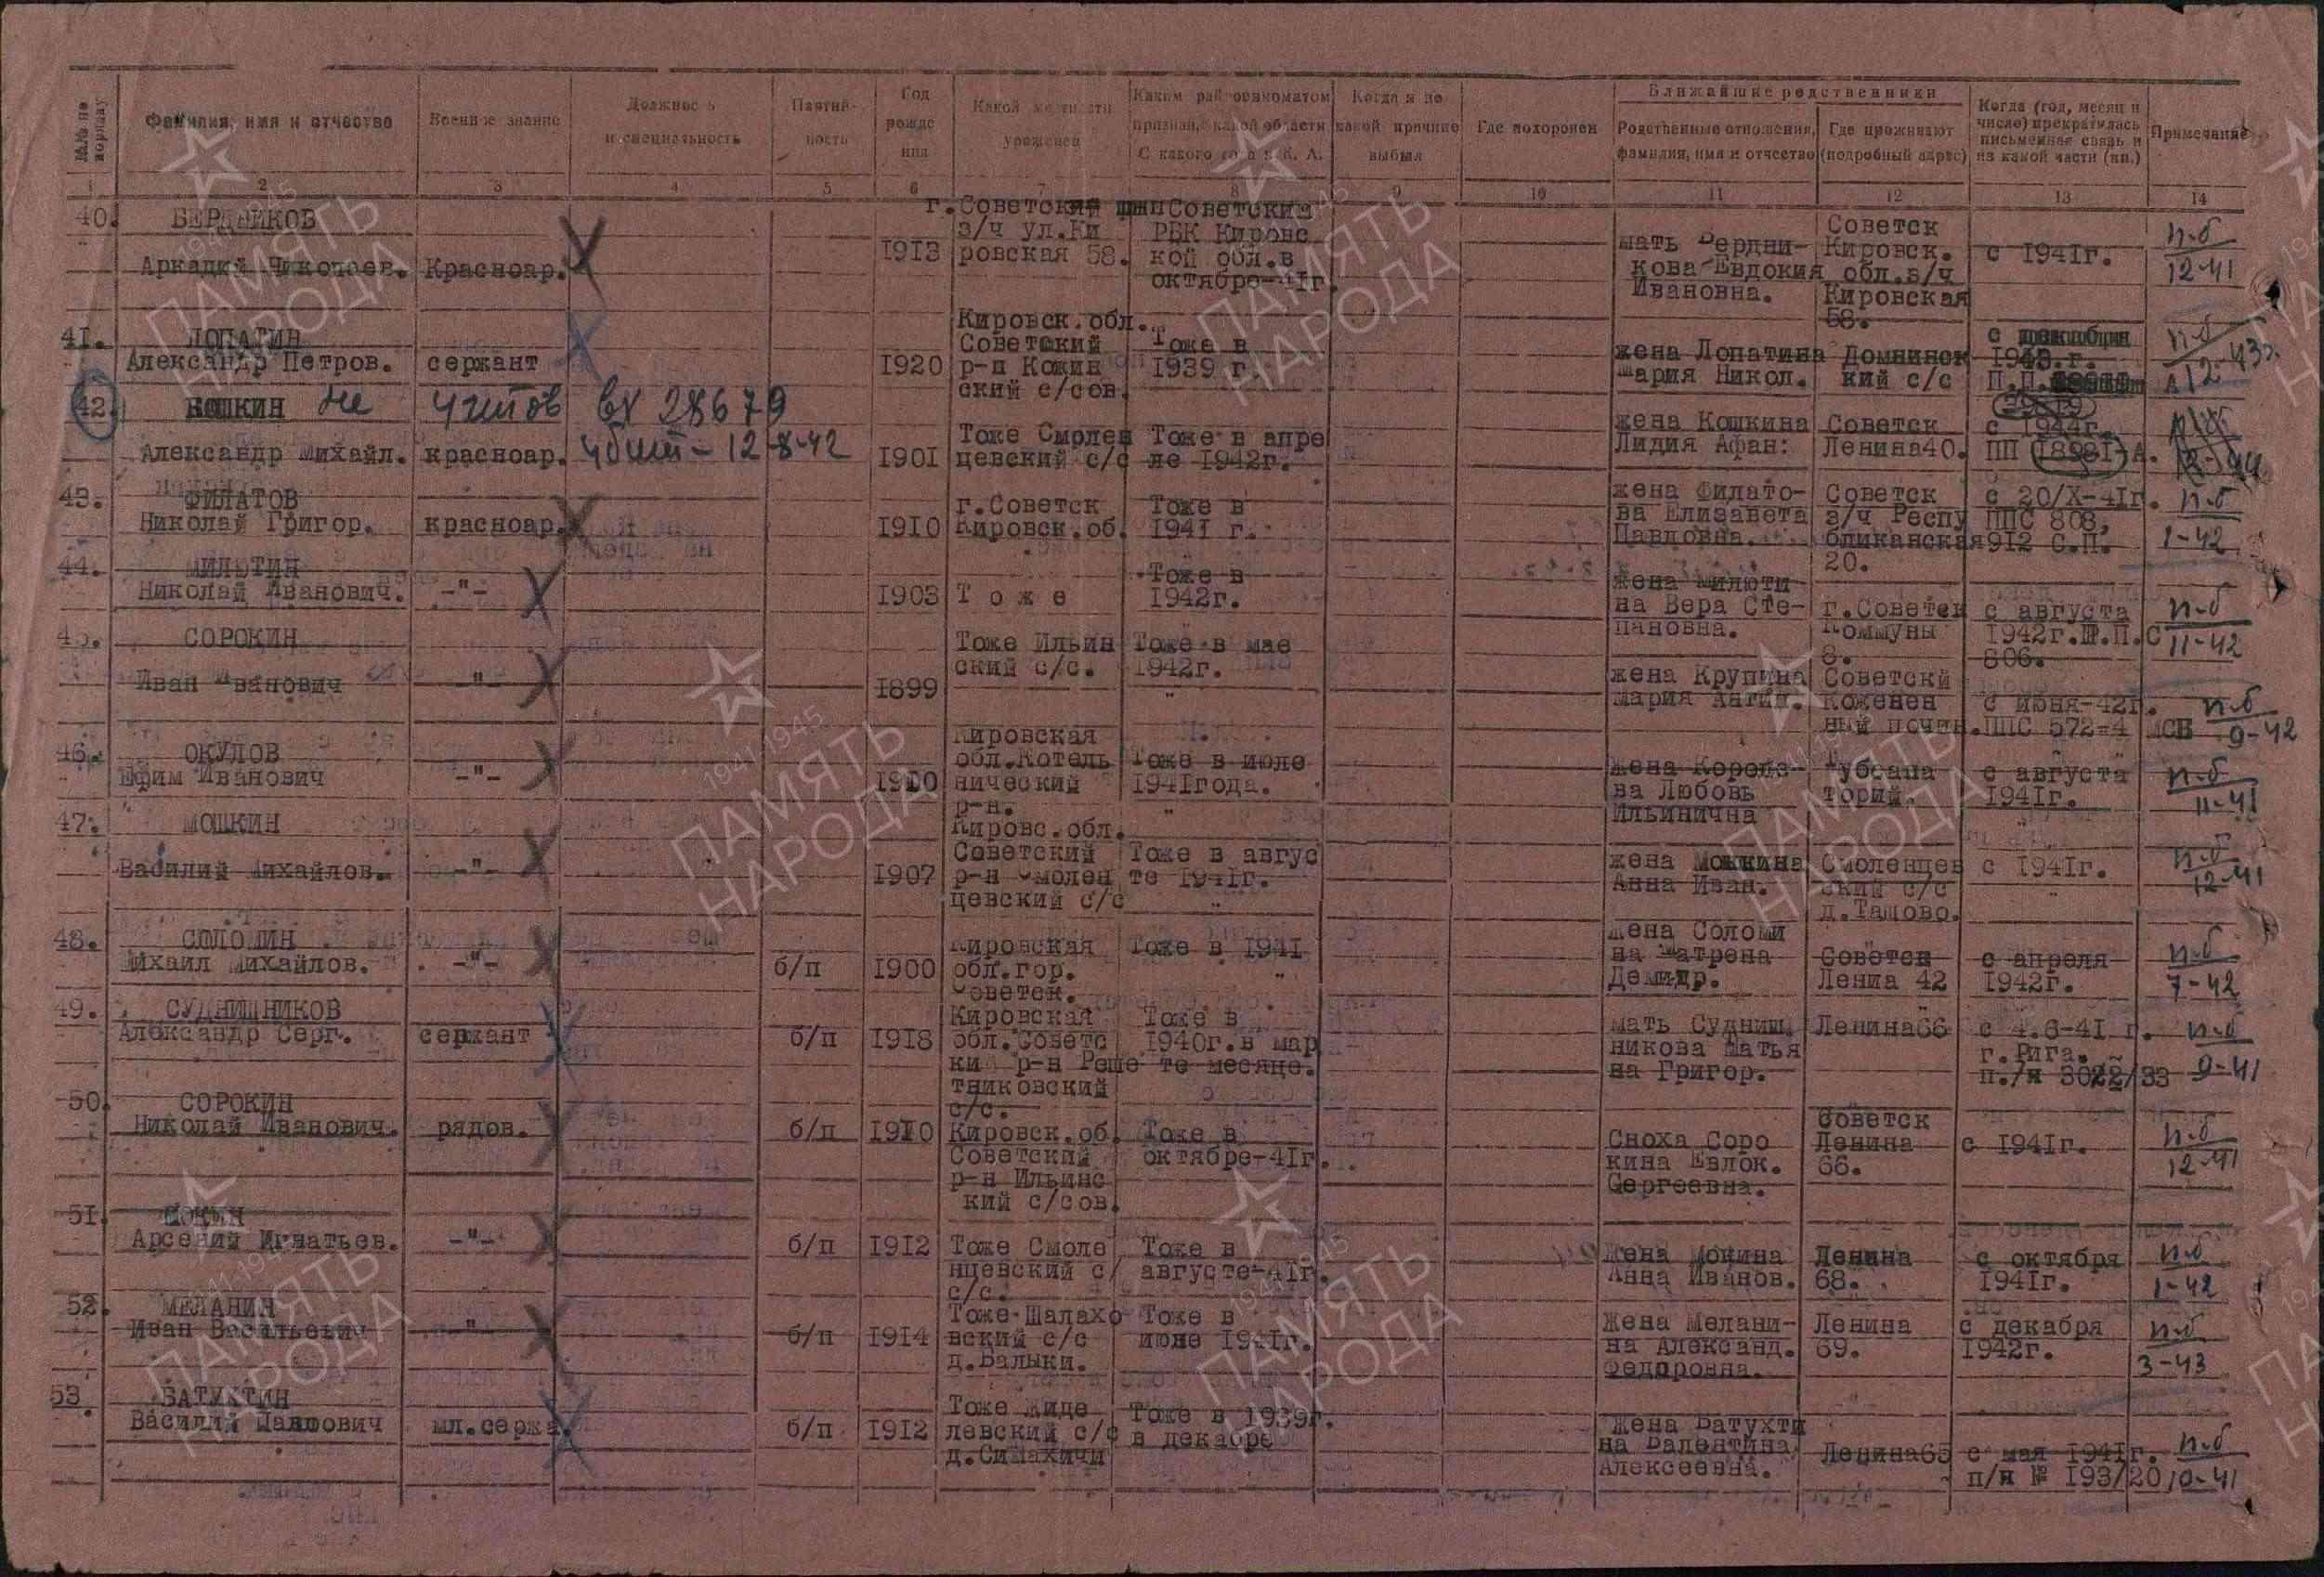 №№ по порядку
Фамилия, имя и отчество
Военное звание
Должность и специальность
Партийность
Год рождения
Какой местности уроженец
Каким райвоенкоматом признан, какой области С какого года в К. А.
Когда и по какой причине выбыл
Где похоронен
Ближайшие родственники
Родственные отношения, фамилия, имя и отчество
Где проживают (подробный адрес)
Когда (год, месяц и число) прекратилась письменная связь и из какой части (пп.)
Примечание
1 2 3 4 5 6 7 8 9 10 11 12 13 14
40. БЕРДНИКОВ
Аркадий Николаев. Красноар.
1913
г.Советский
з/ч ул.Ки
ровская 58.
Советским
РВК Кировс
кой обл.в
октябре-41г.
мать Бердни-
кова Евдокия
Ивановна.
Советск
Кировск.
обл.з/ч
Кировская
58.
с 1941г.
п-б
12-41
41. ЛОПАТИН
Александр Петров. сержант
1920
Кировск.обл.
Советский
р-н Кожин
ский с/сов.
Тоже в
1939 г.
жена Лопатина
Мария Никол.
Домнинск
кий с/с
с декабря
1943.г.
П.П.
п-б
12-43г.
42. КОШКИН не учтов вх 28679
Александр Михайл. красноар. убит - 12-8-42
1901
Тоже Смолен
цевский с/с
Тоже в апре
ле 1942г.
жена Кошкина
Лидия Афан:
Советск
Ленина40.
с 1944г.
ПП 18981-А.
43. ФИЛАТОВ
Николай Григор. красноар.
1910
г.Советск
Кировск.об.
Тоже в
1941 г.
жена Филато-
ва Елизавета
Павловна.
Советск
з/ч Респу
бликанская
20.
с 20/X-41г.
ППС 808,
912 С.П.
п-б
1-42
44. МИЛЮТИН
Николай Иванович. -"-
1903
Т о ж е
Тоже в
1942г.
жена Милюти
на Вера Сте-
пановна.
г.Советск
Коммуны
8.
с августа
1942г.П.П.С
806.
п-б
11-42
45. СОРОКИН
Иван Иванович -"-
1899
Тоже Ильин
ский с/с.
Тоже в мае
1942г.
жена Крупина
Мария Антип.
Советски
Коженен
ный почин.
с июня-42г.
ППС 572-4 МСБ
п-б
9-42
46. ОКУЛОВ
Ефим Иванович -"-
1910
Кировская
обл.Котель
нический
р-н.
Тоже в июле
1941года.
жена Короле-
ва Любовь
Ильинична
Тубсана
торий.
с августа
1941г.
п-б
11-41
47. МОШКИН
Василий Михайлов. -"-
1907
Кировс.обл.
Советский
р-н Смолен
цевский с/с
Тоже в авгус
те 1941г.
жена Мошкина
Анна Иван.
Смоленцев
ский с/с
д.Ташово.
с 1941г.
п-б
12-41
48. СОЛОМИН
Михаил Михайлов. -"-
б/п 1900
Кировская
обл.гор.
Советск.
Тоже в 1941
жена Соломи
на Матрена
Демидр.
Советск
Лениа 42
с апреля
1942г.
п-б
7-42
49. СУДНИШНИКОВ
Александр Серг. сержант
б/п 1918
Кировская
обл.Советс
кий р-н Реше
тниковский
с/с.
Тоже в
1940г.в мар
те месяце.
мать Судниш
никова Татья
на Григор.
Ленина66
с 4.6-41 г.
г.Рига.
п./я 3022/33
п-б
9-41
50. СОРОКИН
Николай Иванович. рядов.
б/п 1910
Кировск.об.
Советский
р-н Ильинс
кий с/сов.
Тоже в
октябре-41г.
Сноха Соро
кина Евдок.
Сергеевна.
Советск
Ленина
66.
с 1941г.
п-б
12-41
51. МОКИН
Арсений Игнатьев. -"-
б/п 1912
Тоже Смоле
нцевский с/
с/с.
Тоже в
августе-41г.
жена Мокина
Анна Иванов.
Ленина
68.
с октября
1941г.
п-б
1-42
52. МЕЛАНИН
Иван Васильевич -"-
б/п 1914
Тоже Шалахо
вский с/с
д.Балыки.
Тоже в
июне 1941г.
жена Мелани-
на Александ.
Федоровна.
Ленина
69.
с декабря
1942г.
п-б
3-43
53. БАТУХТИН
Василий мл.сержа
б/п 1912
Тоже Жиде
левский с/с
д.Симахичи
Тоже в 1939г.
в декабре
жена Батухти
на Валентина
Алексеевна.
Ленина65
с мая 1941г.
п/я № 193/20
п-б
10-41
1941-1945
ПАМЯТЬ
НАРОДА